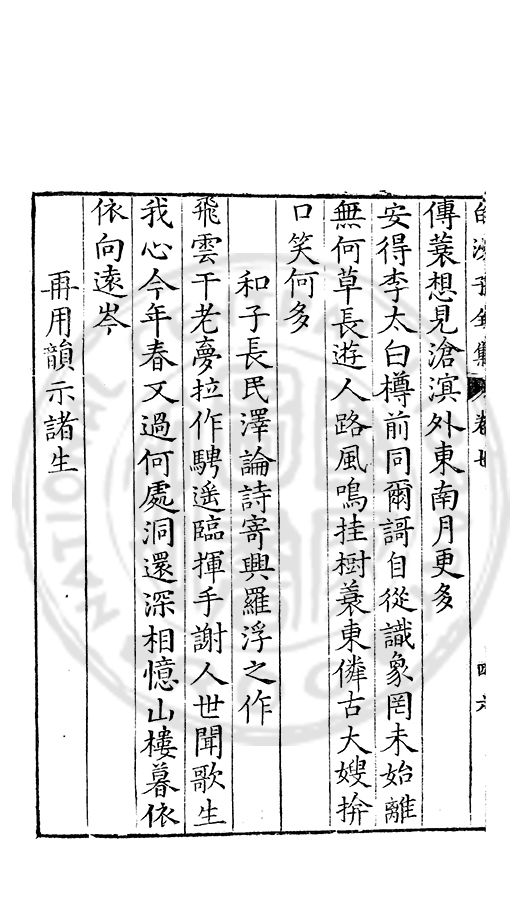 傳蓑想見滄溟外東南月更多
安得李太白樽前同爾謌自從識象罔未始離
無何草長遊人路風鳴挂樹蓑東鄰古大嫂拚
口笑何多
和子長民澤論詩寄興羅浮之作
飛雲干老夢拉作騁遥臨揮手謝人世聞歌生
我心今年春又過何處洞還深相憶山樓暮依
依向遠岑
再用韻示諸生